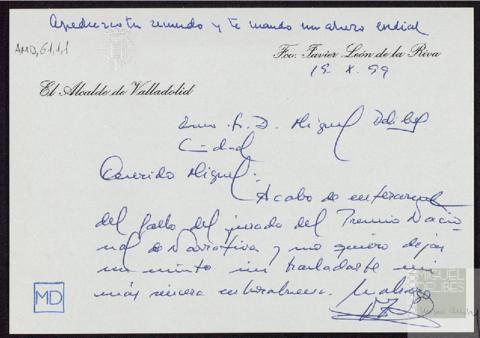 Agradezco tu recuerdo y te mando un abrazo cordial
AMD,61,1,1
Fco. Javier León de la Riva
15. X. 99
El Alcalde de Valladolid
Excmo. Sr. D. Miguel Delibes
Ciudad
Querido Miguel:
Acabo de enterarme
del fallo del jurado del Premio Nacio
nal de Narrativa y no quiero dejar
un minuto sin trasladarte mi
más sincera enhorabuena. Un abrazo
MD
MIGUEL
DELIBES